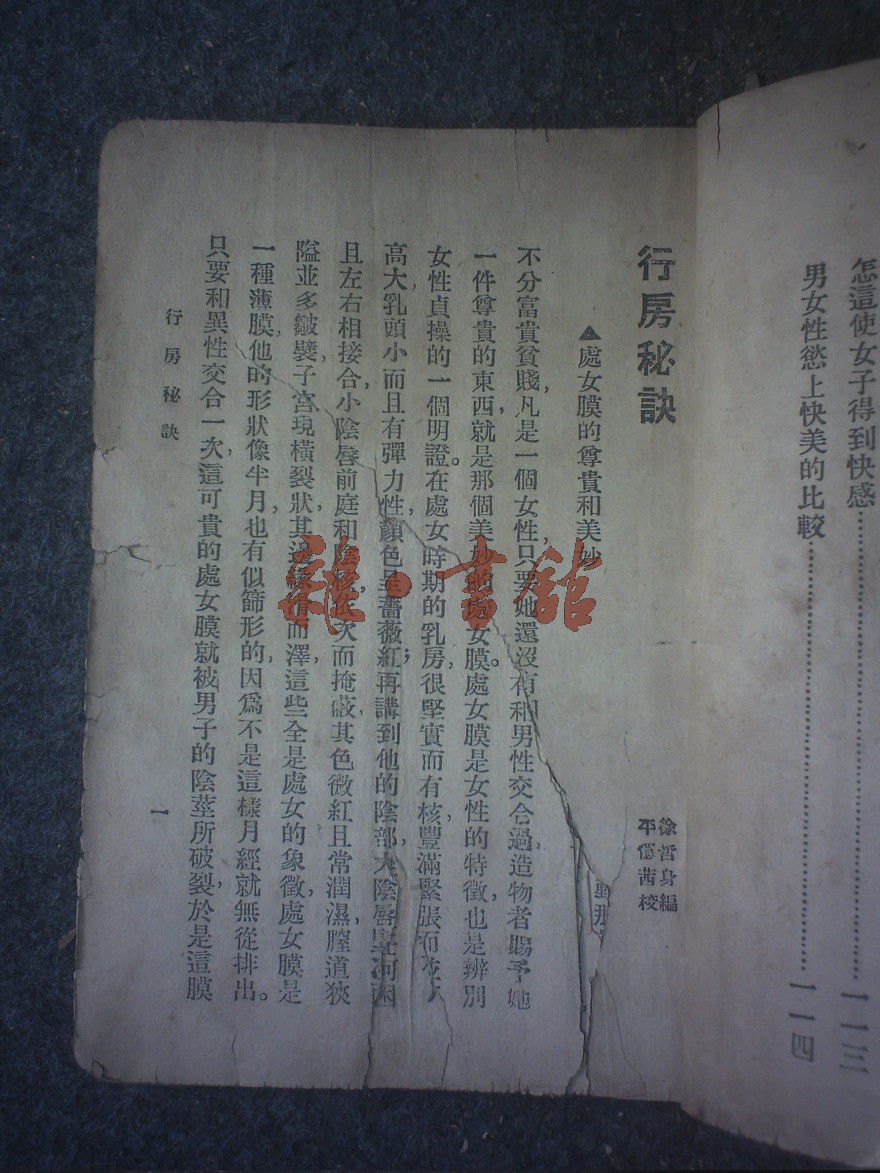 怎這使女子得到快感……………………一一三
男女性慾上快美的比較……………………一一四
行房秘訣
徐哲身編
平僖茜校
▲處女膜的尊貴和美妙
不分富貴貧賤，凡是一個女性，只要她還沒有和男性交合過，造物者賜予她
一件尊貴的東西，就是那個美妙的處女膜。處女膜是女性的特徵，也是辨別
女性貞操的一個明證。在處女時期的乳房，很堅實而有核，豐滿緊張而
高大，乳頭小而且有彈力性，顏色呈薔薇紅；再講到他的陰部，大陰唇
且左右相接合，小陰唇前庭和陰核，依次而掩蔽，其色微紅，且常潤濕，膣道狹
隘並多皺襞，子宮現橫裂狀，其邊緣滑而澤，這些全是處女的象徵，處女膜是
一種薄膜，他的形狀像半月，也有似篩形的，因爲不是這樣，月經就無從排出。
只要和異性交合一次，這可貴的處女膜就被男子的陰莖所破裂，於是這膜
行房秘訣
一
雜·書館